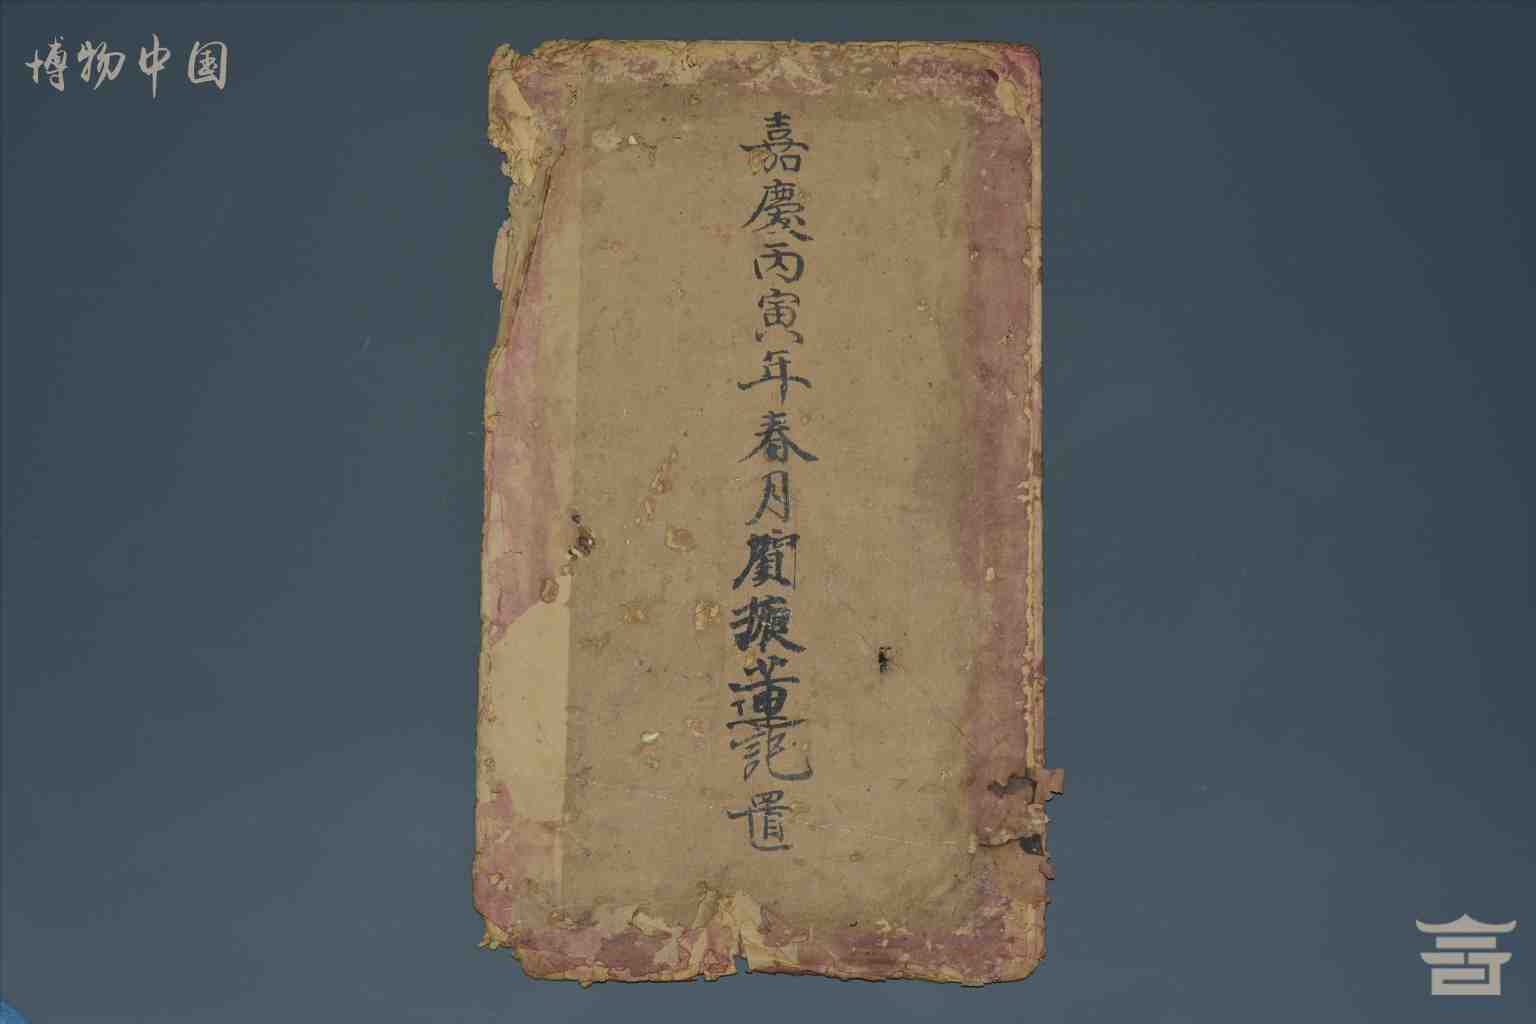 博物中国
嘉慶丙寅年春月閻振蓮記置